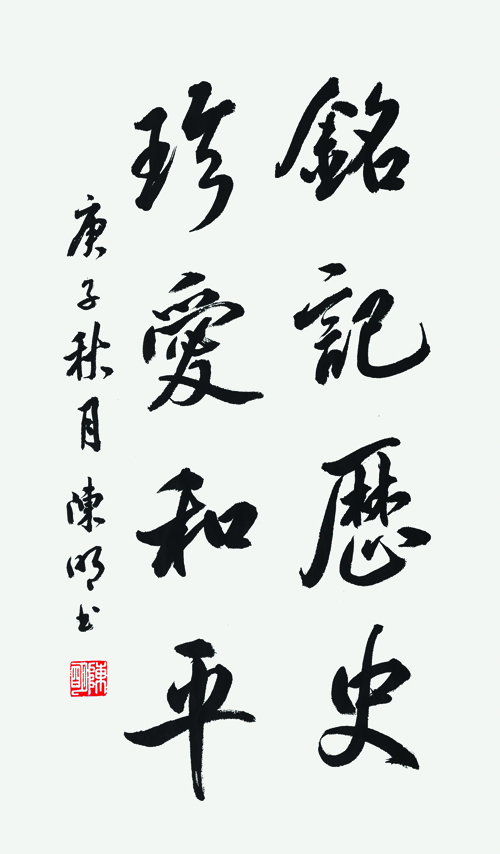 銘記歷史
珍愛和平
庚子秋月陳明書
陳明